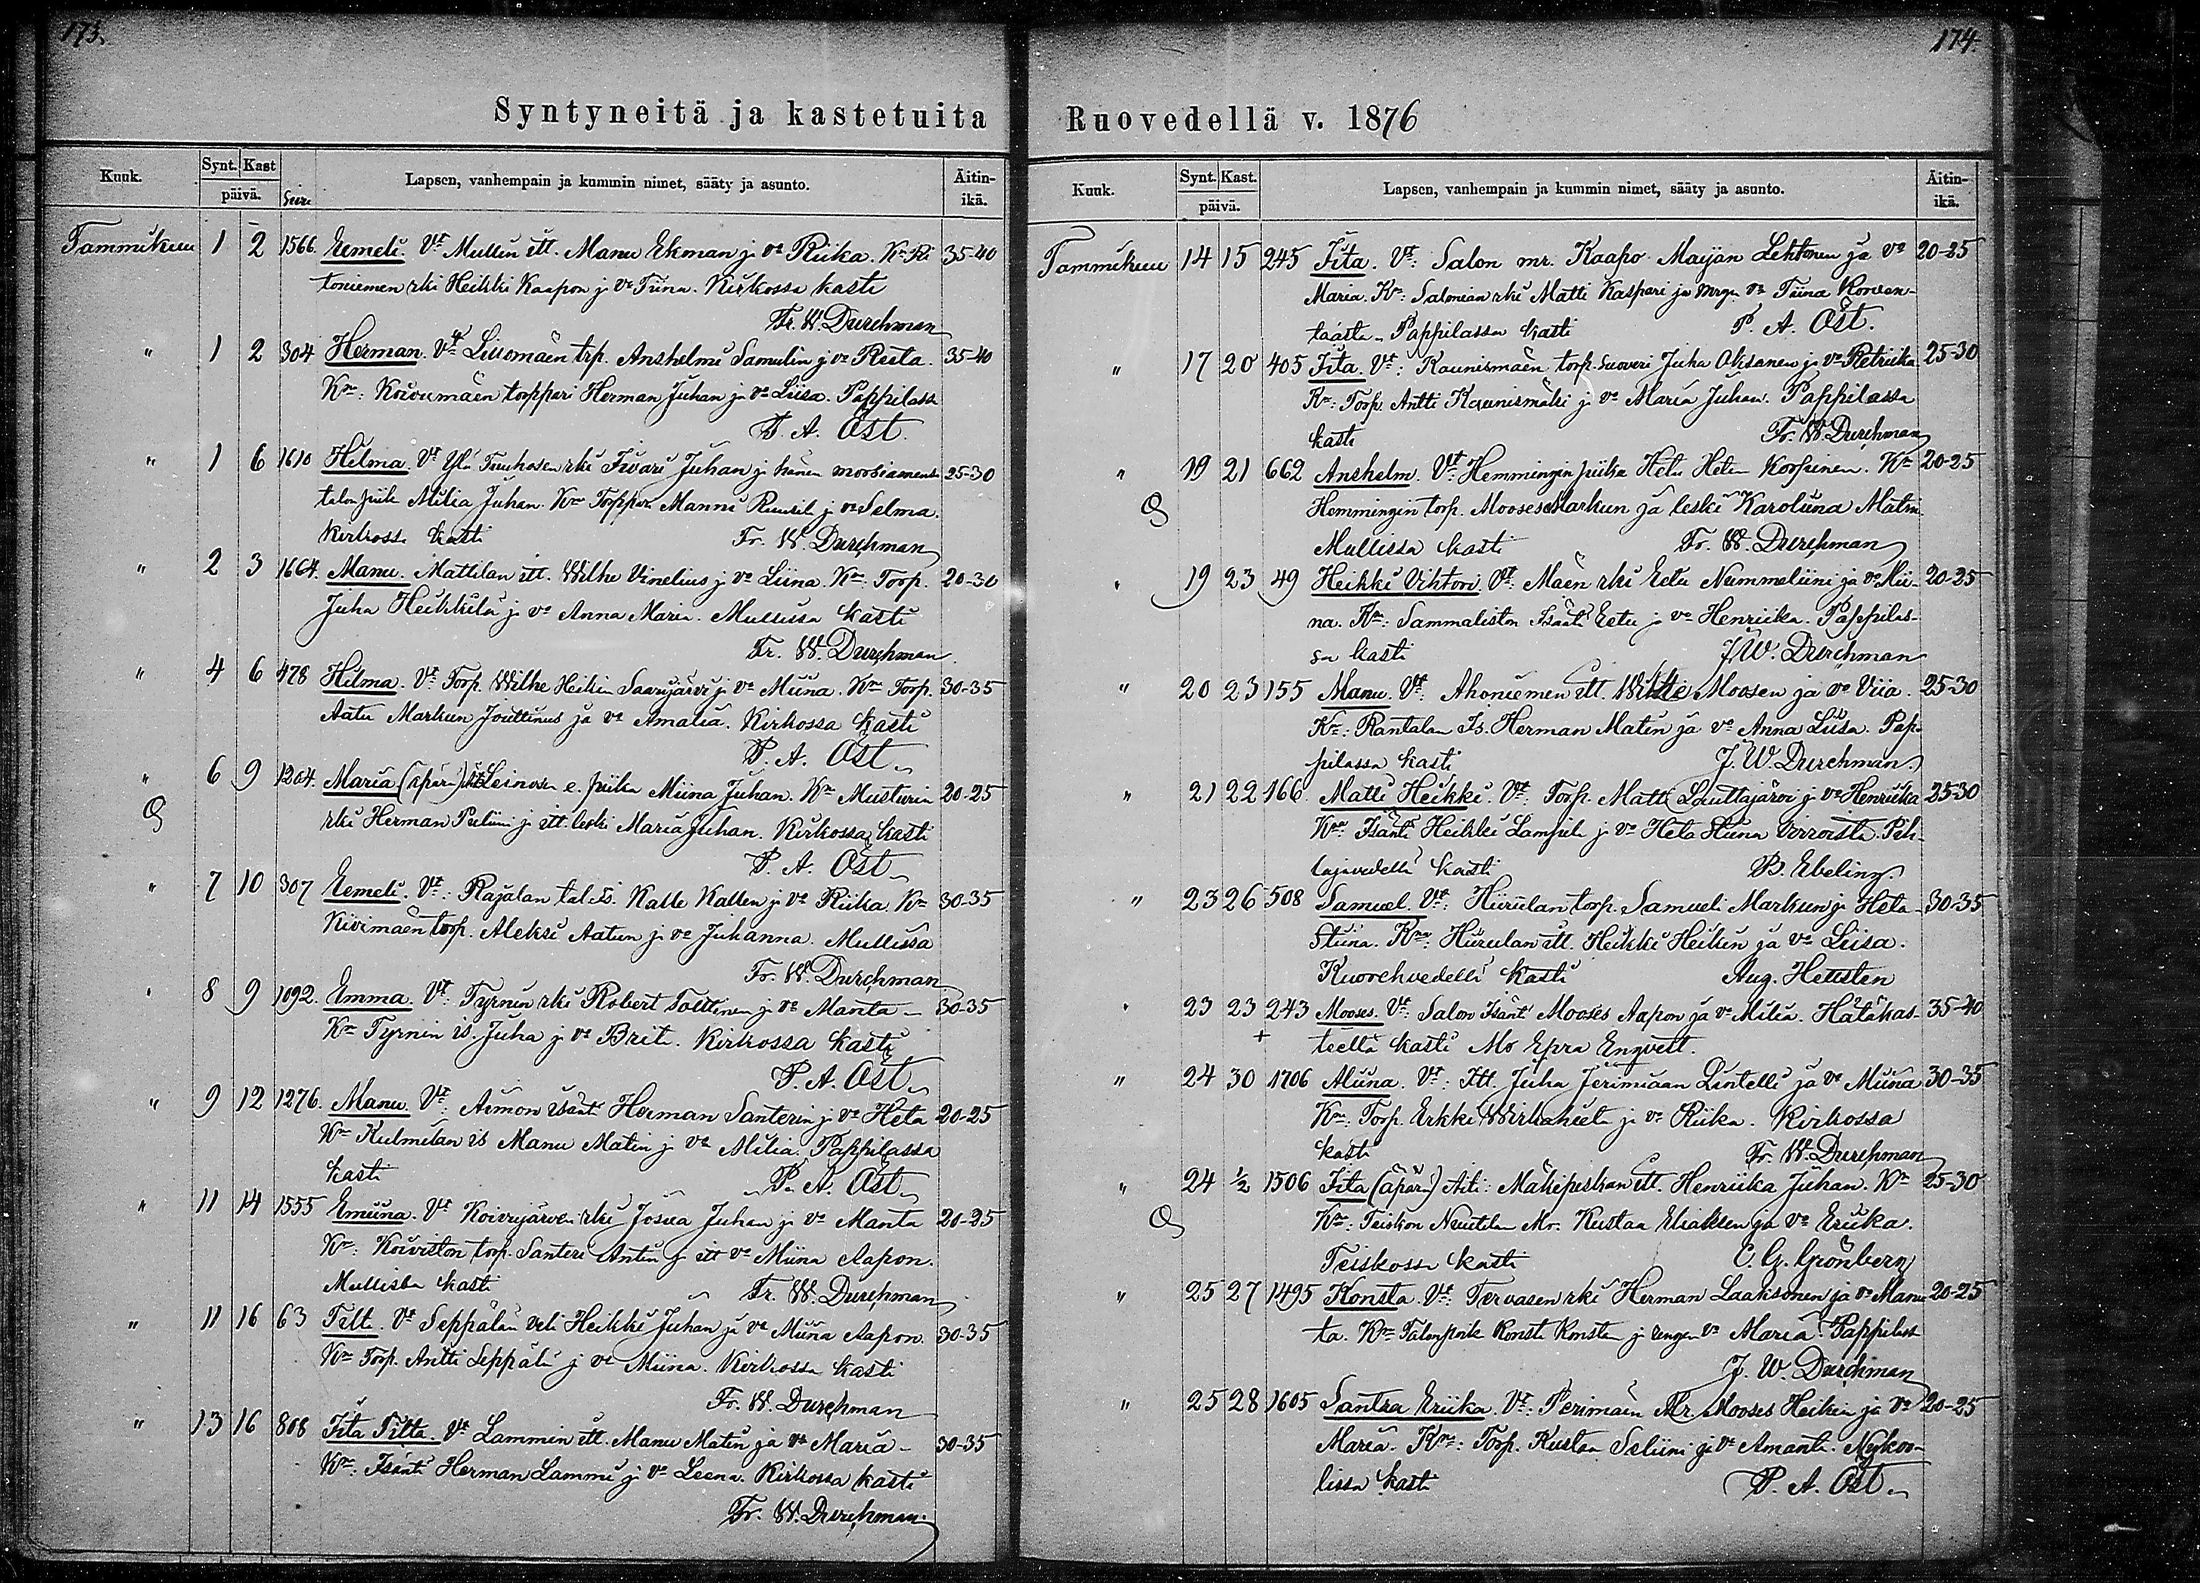 173.
Syntyneitä ja kastetuita
Kuuk. Synt. Kast päivä. Lapsen, vanhempain ja kummin nimet, sääty ja asunto. Äitin-ikä.
Tammikuu 1 2 1566. Eemeli. Vt Mullin itt. Manu Ekman j. vo Riika. Kmt 35-40
toniemen rki Heikki Kaapon j. vo Tiina. Kirkossa kasti
Fr. W. Durchman
" 1 2 304 Herman. Vt Liusmäen trp. Anshelmi Samulin j vo Reeta. 35-40
Km: Koivumäen torppari Herman Juhan ja vo Liisa. Pappilassa
P. A. Öst.
" 1 6 1610 Hilma. Vt Ylä Tuuhosen rki Iivari Juhan j hänen morsiamensa 25-30
talon piik Milia Juhan. Km Torppar Manni j vo Selma.
Kirkossa kasti Fr. W. Durchman
" 2 3 1664. Manu. Mattilan itt. Wilhe Vinelius j vo Liina. Km Torp. 20-30
Juha Heikkilä j vo Anna Maria. Mullissa kasti
Fr. W. Durchman
" 4 6 478 Hilma. Vt Torp. Wilhe Heikin Saarijärvi j vo Miina. Km Torp. 30-35
Aatu Markun Jouttinus ja vo Amalia. Kirkossa kasti
P. A. Öst.
" 6 9 1204. Maria (äpärä) Leinosen e. piika Miina Juhan. Km Musturin 20-25
rki Herman Peltiini ja itt. leski Maria Juhan. Kirkossa kasti
P. A. Öst.
" 7 10 307 Eemeli. Vt: Rajalan tal. is. Kalle Kallen j vo Riika. Km 30-35
Kivimäen torp. Aleksi Aatun j vo Juhanna. Mullissa
Fr. W. Durchman
" 8 9 1092. Emma. Vt: Tyrnin rki Robert Tolttinen j vo Manta 30-35
Km Tyrnin is. Juha j. vo Brit. Kirkossa kasti
P. A. Öst.
" 9 12 1276. Manu. Vt: Aimon isänt Herman Santerin j vo Heta 20-25
Km Kulmalan is Manu Matin j vo Milia. Pappilassa
kasti P. A. Öst.
" 11 14 1555 Emiina. Vt Koivujärven rki Josua Juhan j vo Manta 20-25
Km: Koiviston torp. Santeri Antin j itt vo Miina Aapon.
Mullissa kasti Fr. W. Durchman
" 11 16 63 Tilt. Vt Seppälän veli Heikki Juhan ja vo Miina Aapon. 30-35
Km Torp. Antti Seppälä j vo Miina. Kirkossa kasti
Fr. W. Durchman
" 13 16 808 Iita Tilta. Vt Lammin itt. Manu Matin ja vo Maria 30-35
Km: Isänt Herman Lammi j vo Leena. Kirkossa kasti
Fr. W. Durchman.
174.
Ruovedellä v. 1876
Kuuk. Synt. Kast. päivä. Lapsen, vanhempain ja kummin nimet, sääty ja asunto. Äitin-ikä.
Tammikuu 14 15 245 Iita. Vt: Salon mr. Kaapo Maijan Lehtonen ja vo 20-25
Maria. Km: Salonian rki Matti Kaspari ja mrgn vo Tiina Korven-
taasta. Pappilassa kasti P. A. Öst.
" 17 20 405 Iita. Vt: Kaunismäen torp. suoveri Juha Oksanen ja vo Retriika 25-30
Km: Torp. Antti Kaunismäki j vo Maria Juhan. Pappilassa
kasti Fr. W. Durchman
" 19 21 662 Anshelm. Vt Hemmingin piika Heta Heten Korpinen. Km 20-25
Hemmingin torp. Mooses Markun ja leski Karoliina Matin
Mullissa kasti Fr. W. Durchman
" 19 23 49 Heikki Vihtori. Vt: Mäen rki Eetu Nummeliini ja vo Mii- 20-25
na. Km: Sammaliston Isänt Eetu j vo Henriika. Pappilas-
sa kasti J. W. Durchman
" 20 23 155 Manu. Vt: Ahoniemen itt. Wille Moosen ja vo Viia. 25-30
Km: Rantalan Is. Herman Matin ja vo Anna Liisa. Pap-
pilassa kasti J. W. Durchman
" 21 22 166. Matti Heikki. Vt: Torp. Matti Louttajärvi j vo Henriika 25-30
Km Isänt Heikki Lampil j vo Heta Stiina Virroista. Pih-
lajavedellä kasti B. Ebeling
" 23 26 508 Samuel. Vt: Hiirilan torp. Samueli Markun j. Heta 30-35
Stiina. Km: Hiirilan itt. Heikki Heikin ja vo Liisa.
Kuorehvedellä kasti Aug. Hellsten
" 23 23 243 Mooses. Vt: Salon Isänt Mooses Aapon ja vo Milia. Hätäkas- 35-40
+ teella kasti Mo Epra Enqvist.
" 24 30 1706 Aliina. Vt: Itt. Juha Jerimiaan Lintelli ja vo Miina 30-35
Km: Torp. Erkki Wirkaheeta j vo Riika. Kirkossa
kasti Fr. W. Durchman
" 24 1/2 1506 Iita (äpärä) Äiti: Mäkipeskan itt. Henriika Juhan. Km 25-30
Km: Teiskon Nuutilan Mr. Kustaa Eliaksen ja vo Eriika.
Teiskossa kasti C. G. Grönberg
" 25 27 1495 Konsta. Vt: Tervasen rki Herman Laaksonen ja vo Man- 20-25
ta. Km Talonpoik Konsti Konstan j rengn vo Maria. Pappilass
J. W. Durchman
" 25 28 1605 Santra Eriika. Vt: Perimäen Mr. Mooses Heikin ja vo 20-25
Maria. Km: Torp. Kustaa Seliini j vo Amanta. Nykoo-
lissa kasti P. A. Öst.